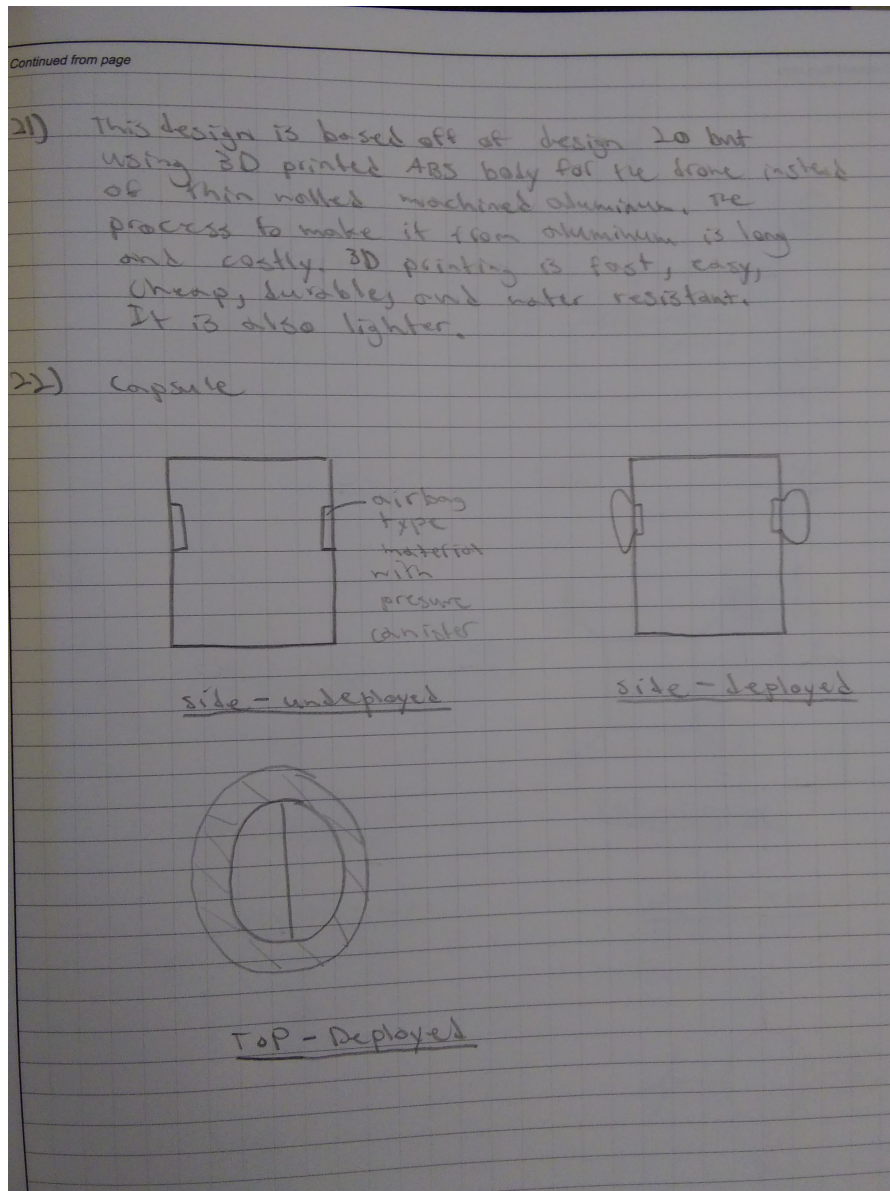 Continued from page
21) This design is based off of design 20 but
using 3D printed ABS body for the drone instead
of thin walled machined aluminum. The
process to make it from aluminum is long
and costly. 3D printing is fast, easy,
cheap, durable, and water resistant.
It is also lighter.
22) Capsule
airbag
type
material
with
presure
canister
side - undeployed
side - deployed
TOP - Deployed